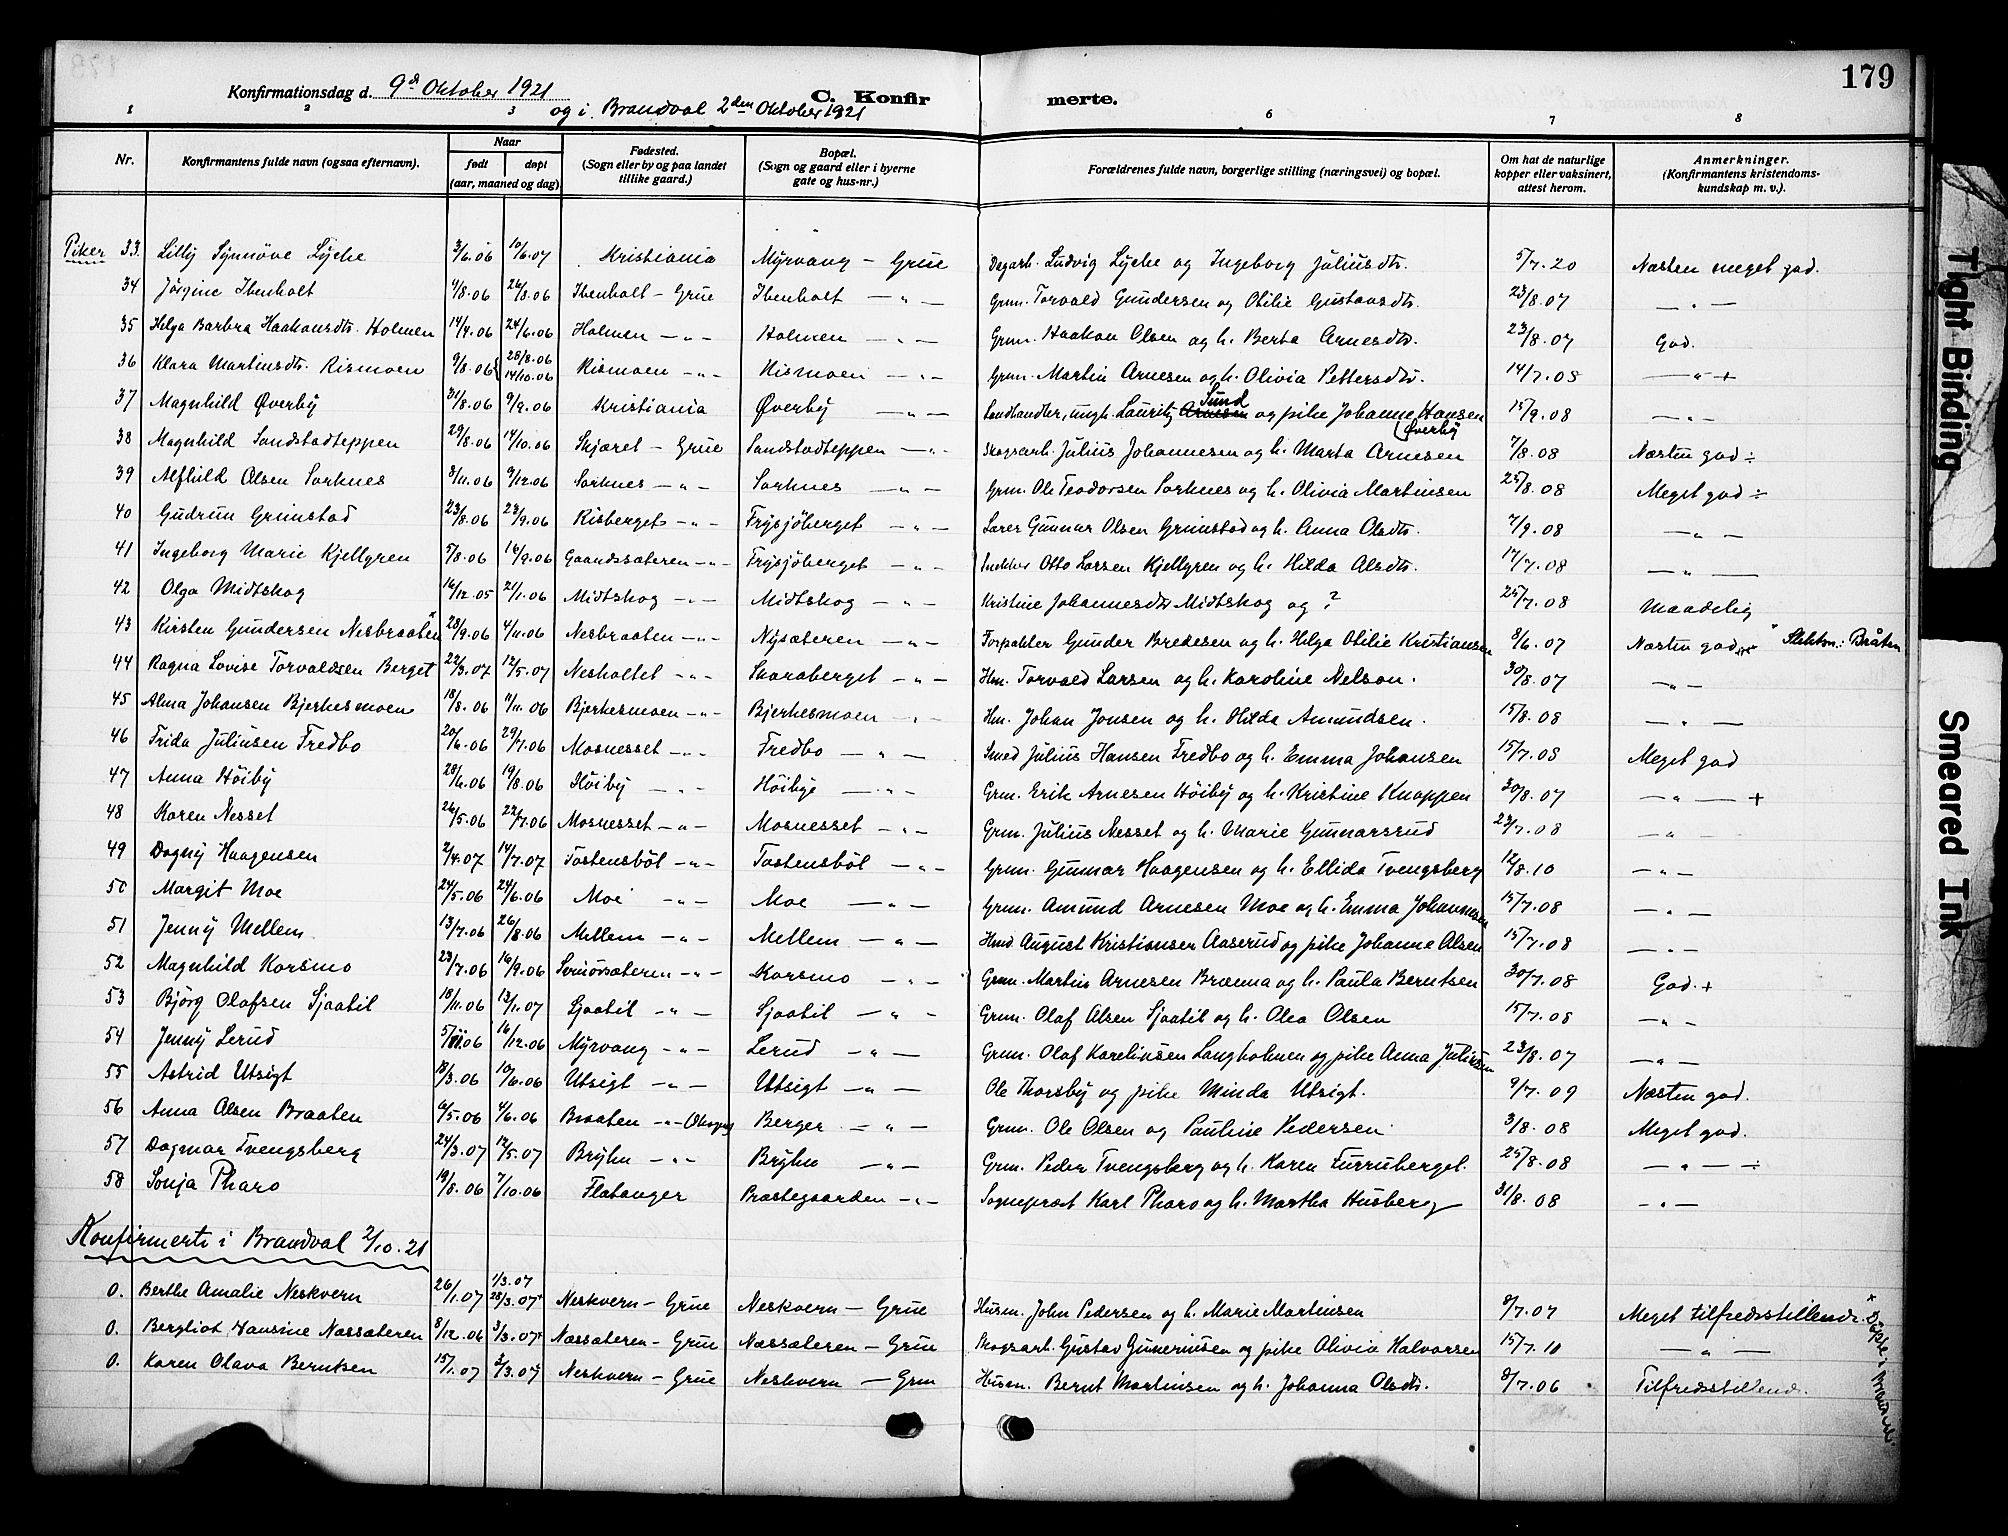 179
Konfirmationsdag d. 9de Oktober 1921
C. Konfirmerte.
og i Brandval 2den Oktober 1921
1 2 3 6 7 8
Nr. Konfirmantens fulde navn (ogsaa efternavn). Naar født døpt (aar, maaned og dag) Fødested. (Sogn eller by og paa landet tillike gaard.) Bopæl. (Sogn og gaard eller i byerne gate og hus-nr.) Forældrenes fulde navn, borgerlige stilling (næringsvei) og bopæl. Om hat de naturlige kopper eller vaksinert, attest herom. Anmerkninger. (Konfirmantens kristendomskundskap m. v.).
Piker 33. Lilly Synnöve Lyche 3/6.06 10/6.07 Kristiania Myrvang - Grue Dagarb. Ludvig Lyche og Ingeborg Juliusdtr. 5/7.20 Næsten meget god.
34 Jörgine Ibenholt 4/8.06 26/8.06 Ibenholt - Grue Ibenholt - " - Grm. Torvald Gundersen og Otilie Gustavsdtr. 23/8.07 - " -
35 Helga Barbra Haakonsdtr. Holmen 14/4.06 24/6.06 Holmen - " - Holmen - " - Grm. Haakon Olsen og h. Berta Arnesdtr. 23/8.07 God.
36 Klara Martinsdtr. Rismoen 9/8.06 28/8.06 14/10.06 Rismoen - " - Rismoen - " - Grm. Martin Arnesen og h. Olivia Pettersdtr. 14/7.08 - " +
37 Magnhild Øverby 31/8.06 9/9.06 Kristiania Øverby - " - Landhandler, ungk. Lauritz Arnesen Sund og pike Johanne Hansen (Øverby 15/9.08 - " -
38 Magnhild Sandstadteppen 29/8.06 14/10.06 Skjæret - Grue Sandstadteppen - " - Skogsarb. Julius Johannesen og h. Marta Arnesen 7/8.08 Næsten god ÷
39 Alfhild Olsen Sorknes 8/11.06 9/12.06 Sorknes - " - Sorknes - " - Grm. Ole Teodorsen Sorknes og h. Olivia Martinsen 25/8.08 Meget god ÷
40 Gudrun Grimstad 23/8.06 23/9.06 Risberget - " - Frysjöberget - " - Lærer Gunnar Olsen Grimstad og h. Anna Olsdtr. 7/9.08 - " -
41 Ingeborg Marie Kjellgren 5/8.06 16/9.06 Gaardssæteren - " - Frysjöberget - " - Otto Larsen Kjellgren og h. Hilda Olsdtr. 17/7.08 - " -
42 Olga Midtskog 16/12.05 21/1.06 Midtskog - " - Midtskog - " - Kristine Johannesdtr Midtskog og ? 25/7.08 Maadelig
43 Kirsten Gundersen Nesbraaten 28/9.06 4/11.06 Nesbraaten - " - Nysæteren - " - Forpakter Gunder Bredesen og h. Helga Otilie Kristiansen 8/6.07 Næsten god Slektsn: Bråten
44 Ragna Lovise Torvaldsen Berget 22/3.07 12/5.07 Nesholtet - " - Skaraberget - " - Hm. Torvald Larsen og h. Karoline Nelson. 30/8.07 - " -
45 Alma Johansen Bjerkesmoen 18/8.06 4/11.06 Bjerkesmoen - " - Bjerkesmoen - " - Hm. Johan Jonsen og h. Hilda Amundsen. 15/8.08 - " -
46 Frida Juliusen Fredbo 20/6.06 29/7.06 Mosnesset - " - Fredbo - " - Smed Julius Hansen Fredbo og h. Emma Johansen 15/7.08 Meget god
47 Anna Höiby 28/6.06 19/8.06 Höiby - " - Höibye - " - Grm. Erik Arnesen Höiby og h. Kristine Knappen 30/8.07 - " - +
48 Karen Nesset 26/5.06 22/7.06 Mosnesset - " - Mosnesset - " - Grm. Julius Nesset og h. Marie Gunnarsrud 23/7.08 - " -
49 Dagny Haagensen 2/4.07 14/7.07 Tostensböl - " - Tostensböl - " - Grm. Gunnar Haagensen og h. Ellida Tvengsberg 12/8.10 - " -
50 Margit Moe 24/5.06 24/6.06 Moe - " - Moe - " - Grm. Amund Arnesen Moe og h. Emma Johannesen 15/7.08 - " -
51 Jenny Mellem 13/7.06 26/8.06 Mellem - " - Mellem - " - August Kristiansen Aaserud og pike Johanne Olsen 15/7.08 - " -
52 Magnhild Korsmo 23/7.06 16/9.06 Svenörsæteren - " - Korsmo - " - Grm. Martin Arnesen Brænna og h. Paula Berntsen 30/7.08 God +
53 Björg Olafsen Sjaatil 18/11.06 13/1.07 Sjaatil - " - Sjaatil - " - Grm. Olaf Olsen Sjaatil og h. Olea Olsen 15/7.08 - " -
54 Jenny Lerud 5/11.06 16/12.06 Myrvang - " - Lerud - " - Grm. Olaf Karelinsen Langholmen og pike Anna Juliusen 23/8.07 - " -
55 Astrid Utsigt 18/3.06 10/6.06 Utsigt - " - Utsigt - " - Ole Thorsby og pike Minda Utsigt. 9/7.09 Næsten god.
56 Anna Olsen Braaten 6/5.06 4/6.06 Braaten - " - Berger - " - Grm. Ole Olsen og Pauline Pedersen. 3/8.08 Meget god.
57 Dagmar Tvengsberg 24/3.07 12/5.07 Bryhn - " - Bryhn - " - Grm. Peder Tvengsberg og h. Karen Furruberget. 25/8.08 - " - ÷
58 Sonja Pharo 19/8.06 7/10.06 Flatanger Præstegaarden - " - Sogneprest Karl Pharo og h. Martha Husberg 31/8.08 - " -
Konfirmerte i Brandval 2/10.21
0. Berthe Amalie Neskvern 26/1.07 1/3.07 28/3.07+ Neskvern - Grue Neskvern - Grue Husm. John Pedersen og h. Marie Martinsen 8/7.07 Meget tilfredsstillende.
0. Bergliot Hansine Næssæteren 8/12.06 3/3.07+ Næssæteren - Grue Næssæteren - Grue Skogsarb. Gustav Guneriusen og pike Olivia Halvorsen 15/7.10 - " -
0. Karen Olava Berntsen 15/1.07 3/3.07 Neskvern - Grue Neskvern - Grue Husm. Bernt Martinsen og h. Johanna Olsdtr. 8/7.06 Tilfredsstillende.
+ Döpte i Brandval.
Tight Binding
Smeared Ink